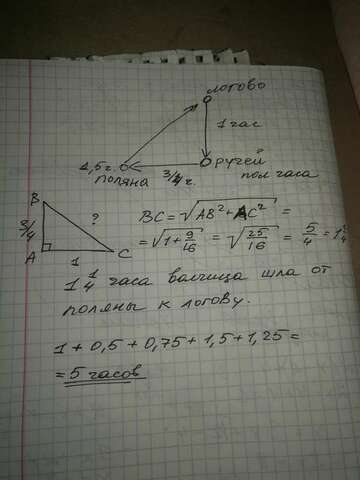 логово
1 час
1,5 г.
3/4 г.
ручей
поляна
пол часа
B
3/4
?
A
1
C
BC = √AB² + AC² =
= √1 + 9/16 = √25/16 = 5/4 = 1
1 1/4 часа волчица шла от
поляны к логову.
1 + 0,5 + 0,75 + 1,5 + 1,25 =
= 5 часов